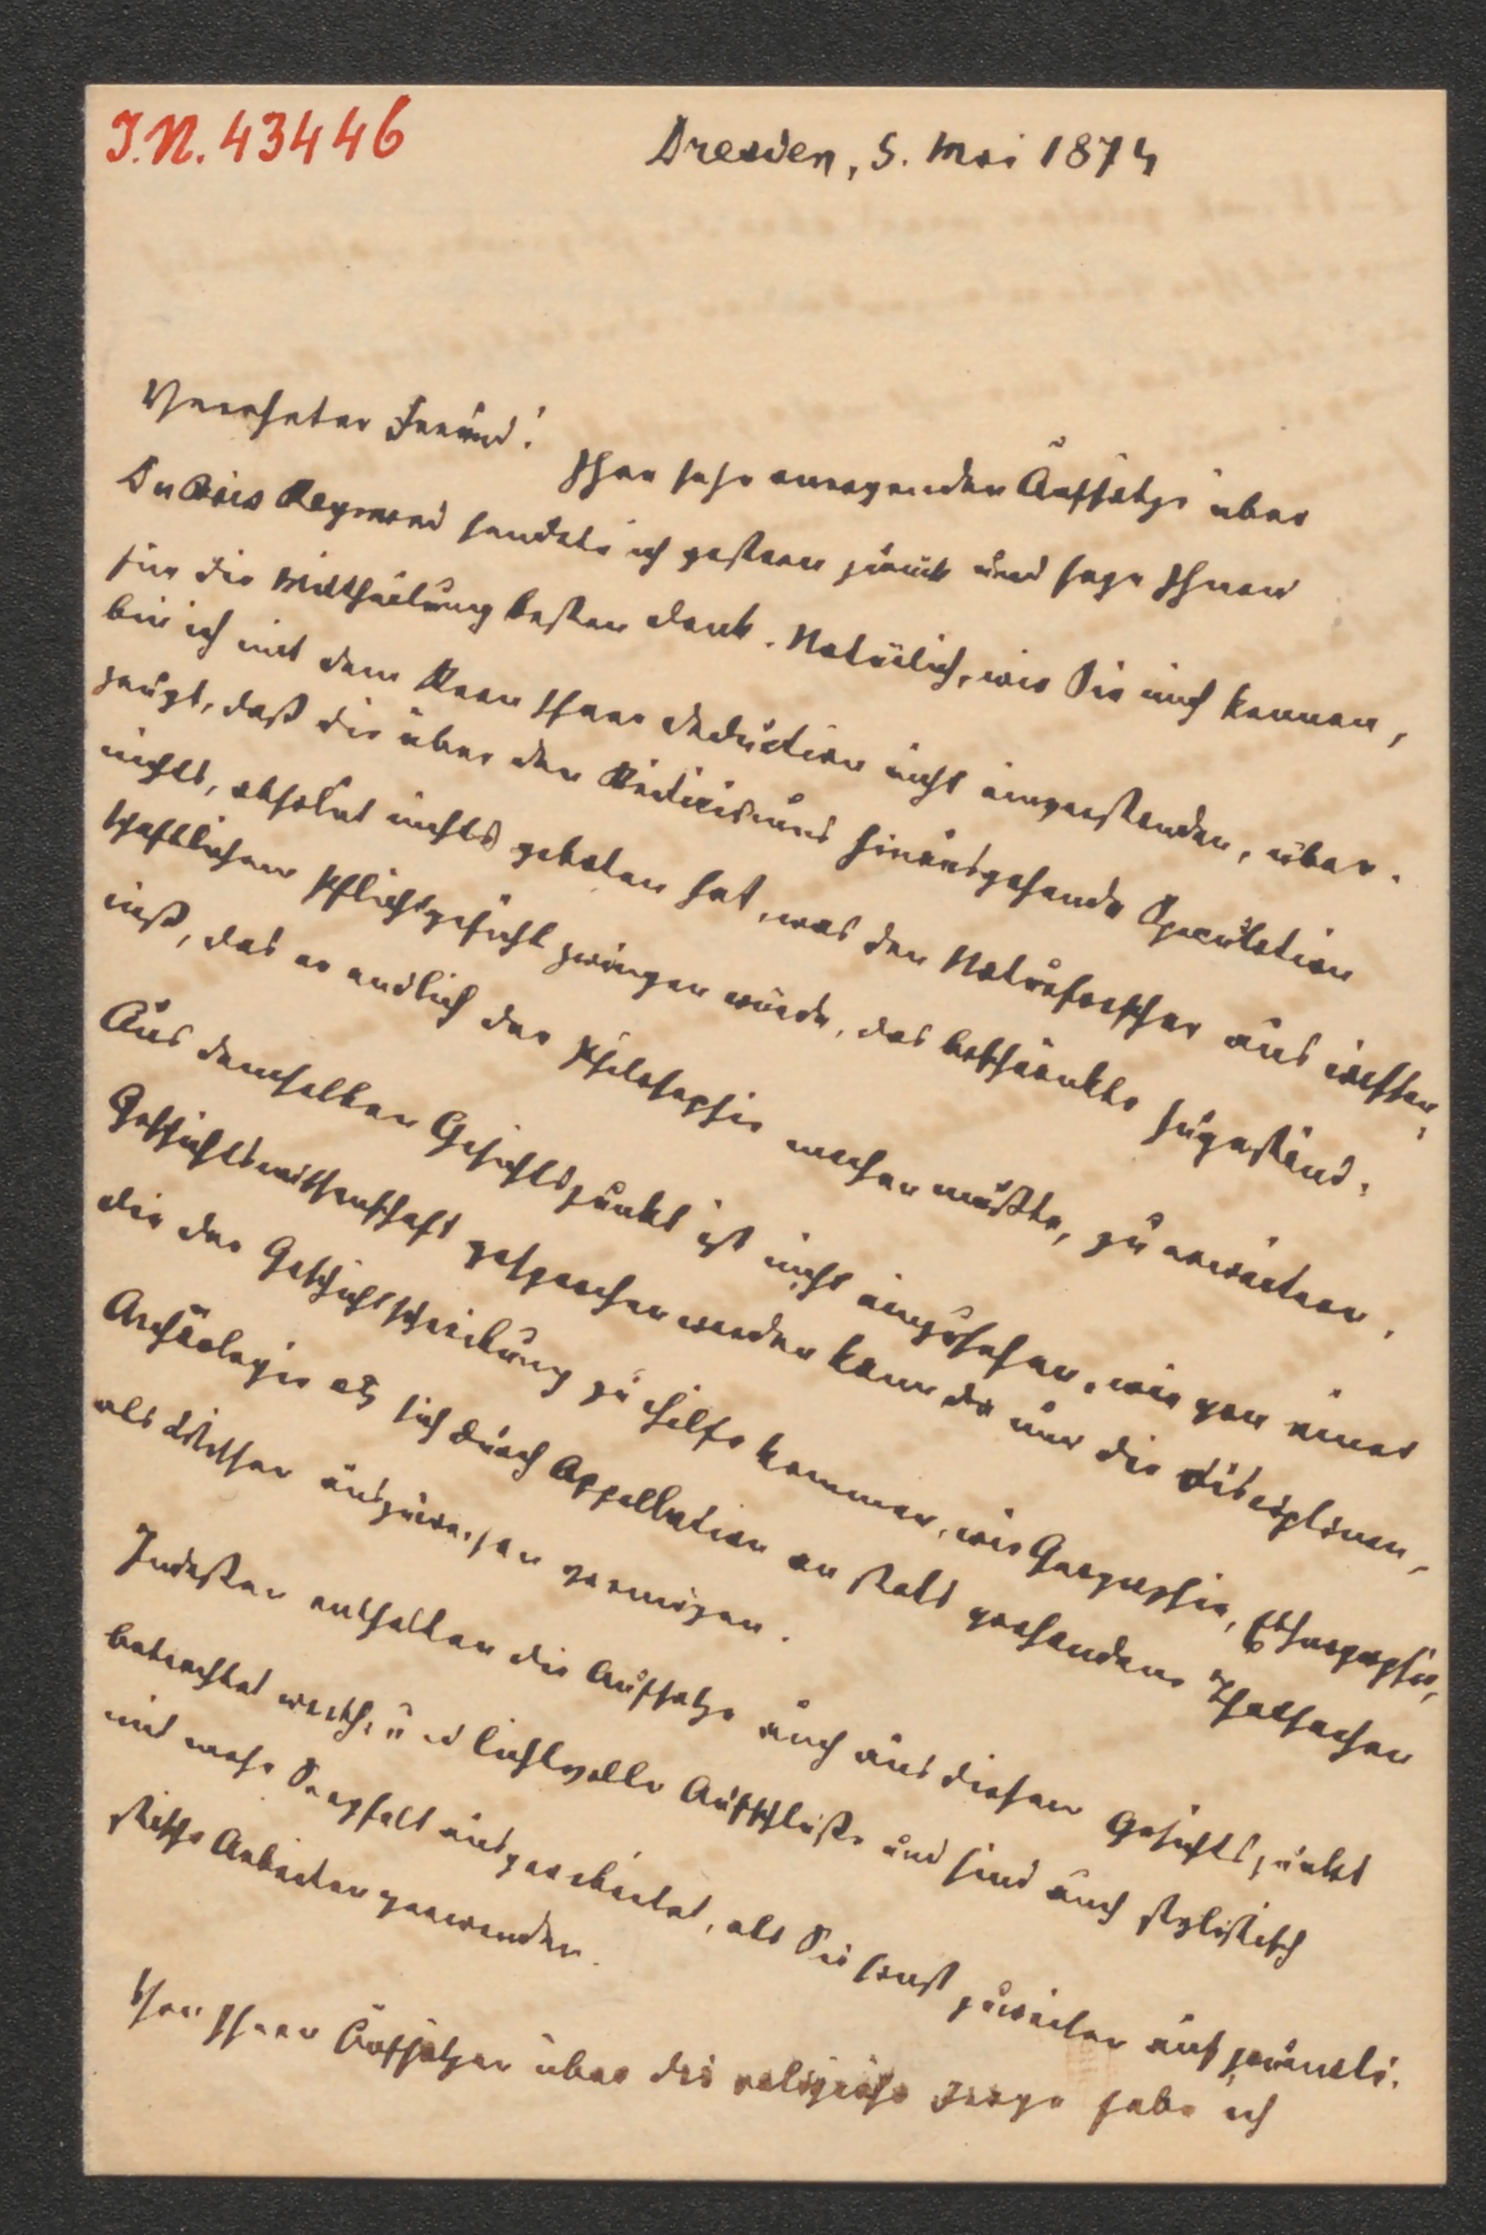 J.N. 43446
Dresden, 5. Mai 1874
Verehrter Freund!
Ihre sehr anregenden Aufsätze über
Du Bois Reymond sandte ich gestern zurück und sage Ihnen
für die Mittheilung besten Dank. Natürlich, wie Sie mich kennen,
bin ich mit dem Kern Ihrer Deduction nicht einverstanden, über-
zeugt, daß die über den Kriticismus hinausgehende Speculation
nichts, absolut nichts geboten hat, was den Naturforscher aus wissen-
schaftlichem Pflichtgefühl zwingen würde, das beschränkte Zugeständ-
niß, das er endlich der Philosophie machen mußte, zu erweitern.
Aus demselben Gesichtspunkt ist nicht einzusehen, wie von einer
Geschichtswissenschaft gesprochen werden kann, da nur die Disciplinen,
die der Geschichtschreibung zu Hilfe kommen, wie Geographie, Ethnographie,
Archäologie etz sich durch Appellation an stets vorhandene Thatsachen
als solche auszuweisen vermögen.
Indessen enthalten die Aufsätze auch aus diesem Gesichtspunkt
betrachtet werth- und lichtvolle Aufschlüße und sind auch stylistisch
mit mehr Sorgfalt ausgearbeitet, als Sie sonst zuweilen auf journali-
stische Arbeiten verwenden.
Von Ihren Aufsätzen über die religiöse Frage habe ich